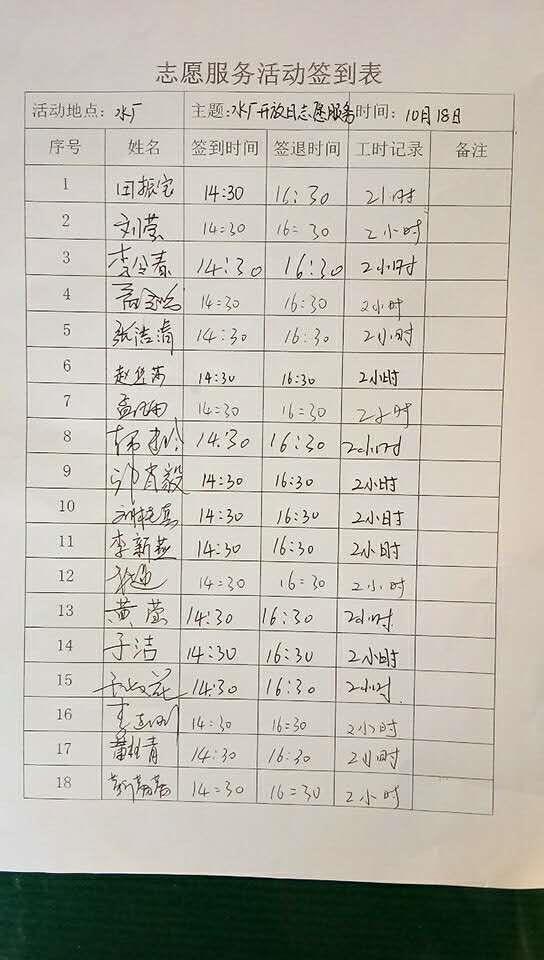 志愿服务活动签到表
活动地点：水厂 主题：水厂开放日志愿服务 时间：10月18日
序号 姓名 签到时间 签退时间 工时记录 备注
1 田振宝 14:30 16:30 2小时
2 刘莹 14:30 16:30 2小时
3 李令春 14:30 16:30 2小时
4 14:30 16:30 2小时
5 张洁清 14:30 16:30 2小时
6 赵 14:30 16:30 2小时
7 孟 14:30 16:30 2小时
8 韩 14:30 16:30 2小时
9 肖毅 14:30 16:30 2小时
10 14:30 16:30 2小时
11 李新燕 14:30 16:30 2小时
12 14:30 16:30 2小时
13 黄莹 14:30 16:30 2小时
14 于洁 14:30 16:30 2小时
15 14:30 16:30 2小时
16 14:30 16:30 2小时
17 14:30 16:30 2小时
18 14:30 16:30 2小时